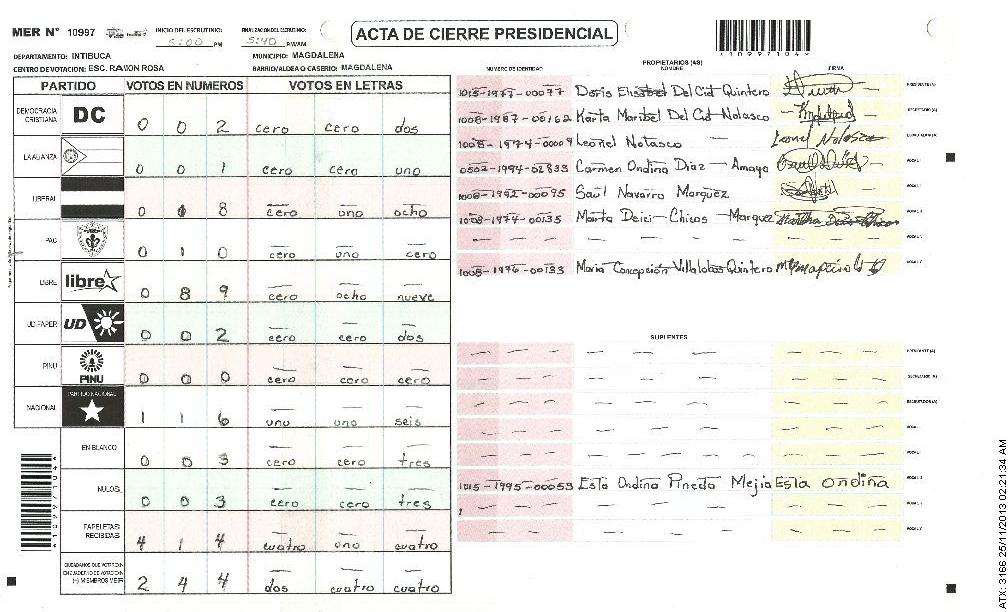 MER N° 10997 INICIO DEL ESCRUTINIO: 5:00 PM FINALIZACION DEL ESCRUTINIO: 5:40 PM/AM ACTA DE CIERRE PRESIDENCIAL *10997104*
DEPARTAMENTO: INTIBUCA MUNICIPIO: MAGDALENA
CENTRO DE VOTACION: ESC. RAMON ROSA BARRIO/ALDEA O CASERIO: MAGDALENA
PARTIDO VOTOS EN NUMEROS VOTOS EN LETRAS
DEMOCRACIA CRISTIANA DC 0 0 2 cero cero dos
LA ALIANZA 0 0 1 cero cero uno
LIBERAL 0 1 8 cero uno ocho
PAC 0 1 0 cero uno cero
LIBRE libre 0 8 9 cero ocho nueve
UD-FAPER UD 0 0 2 cero cero dos
PINU PINU 0 0 0 cero cero cero
NACIONAL PARTIDO NACIONAL 1 1 6 uno uno seis
EN BLANCO 0 0 3 cero cero tres
NULOS 0 0 3 cero cero tres
PAPELETAS RECIBIDAS 4 1 4 cuatro uno cuatro
CIUDADANOS QUE VOTARON EN CUADERNO DE VOTACION (+) MIEMBROS MER 2 4 4 dos cuatro cuatro
*10997104*
PROPIETARIOS (AS)
NUMERO DE IDENTIDAD NOMBRE FIRMA
1015-1977-00077 Doris Elisabel Del Cid Quintero PRESIDENTE (A)
1008-1987-00162 Karla Maribel Del Cid Nolasco SECRETARIO (A)
1008-1974-00009 Leonel Nolasco Leonel Nolasco ESCRUTADOR (A)
0502-1994-02833 Carmen Ondina Diaz Amaya VOCAL I
1008-1992-00095 Saúl Navarro Marquez VOCAL II
1008-1974-00135 Marta Deici Chicas Marquez VOCAL III
VOCAL IV
1008-1976-00133 Maria Concepción Villalobos Quintero VOCAL V
SUPLENTES
PRESIDENTE (A)
SECRETARIO (A)
ESCRUTADOR (A)
VOCAL I
VOCAL II
1015-1995-00053 Esta Ondina Pineda Mejia Esta ondina VOCAL III
VOCAL IV
VOCAL V
ATX: 3166 25/11/2013 02:21:34 AM